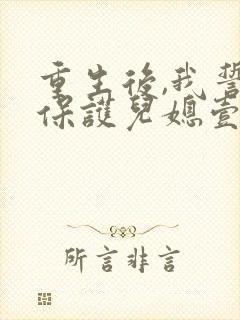 重生後,我誓
保護兒媳壹
所言非言